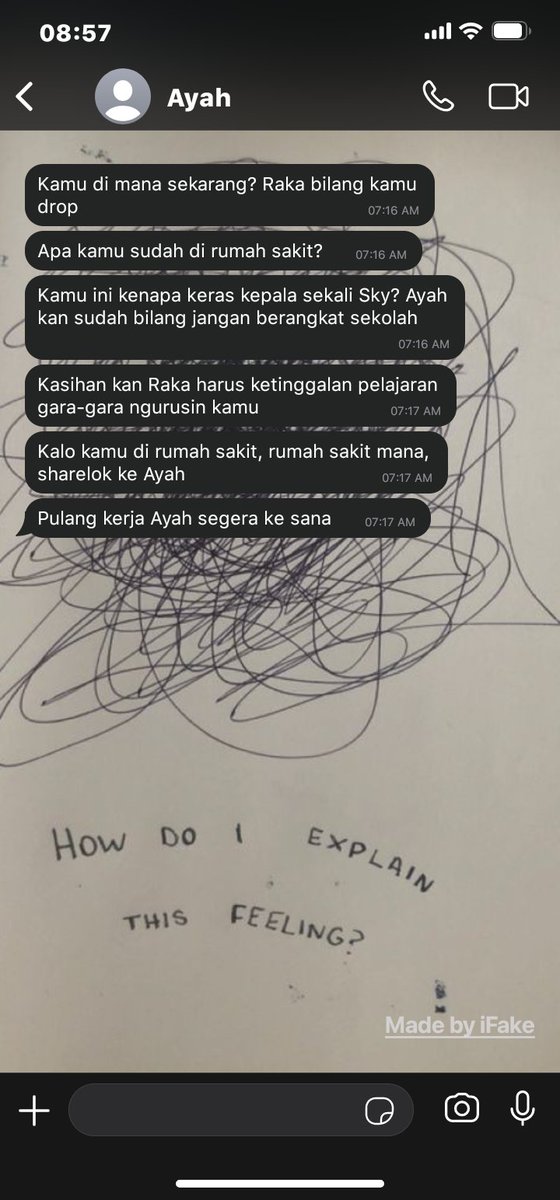 08:57
Ayah
Kamu di mana sekarang? Raka bilang kamu
drop
07:16 AM
Apa kamu sudah di rumah sakit?
07:16 AM
Kamu ini kenapa keras kepala sekali Sky? Ayah
kan sudah bilang jangan berangkat sekolah
07:16 AM
Kasihan kan Raka harus ketinggalan pelajaran
gara-gara ngurusin kamu
07:17 AM
Kalo kamu di rumah sakit, rumah sakit mana,
sharelok ke Ayah
07:17 AM
Pulang kerja Ayah segera ke sana
07:17 AM
HOW DO I EXPLAIN
THIS FEELING?
Made by iFake